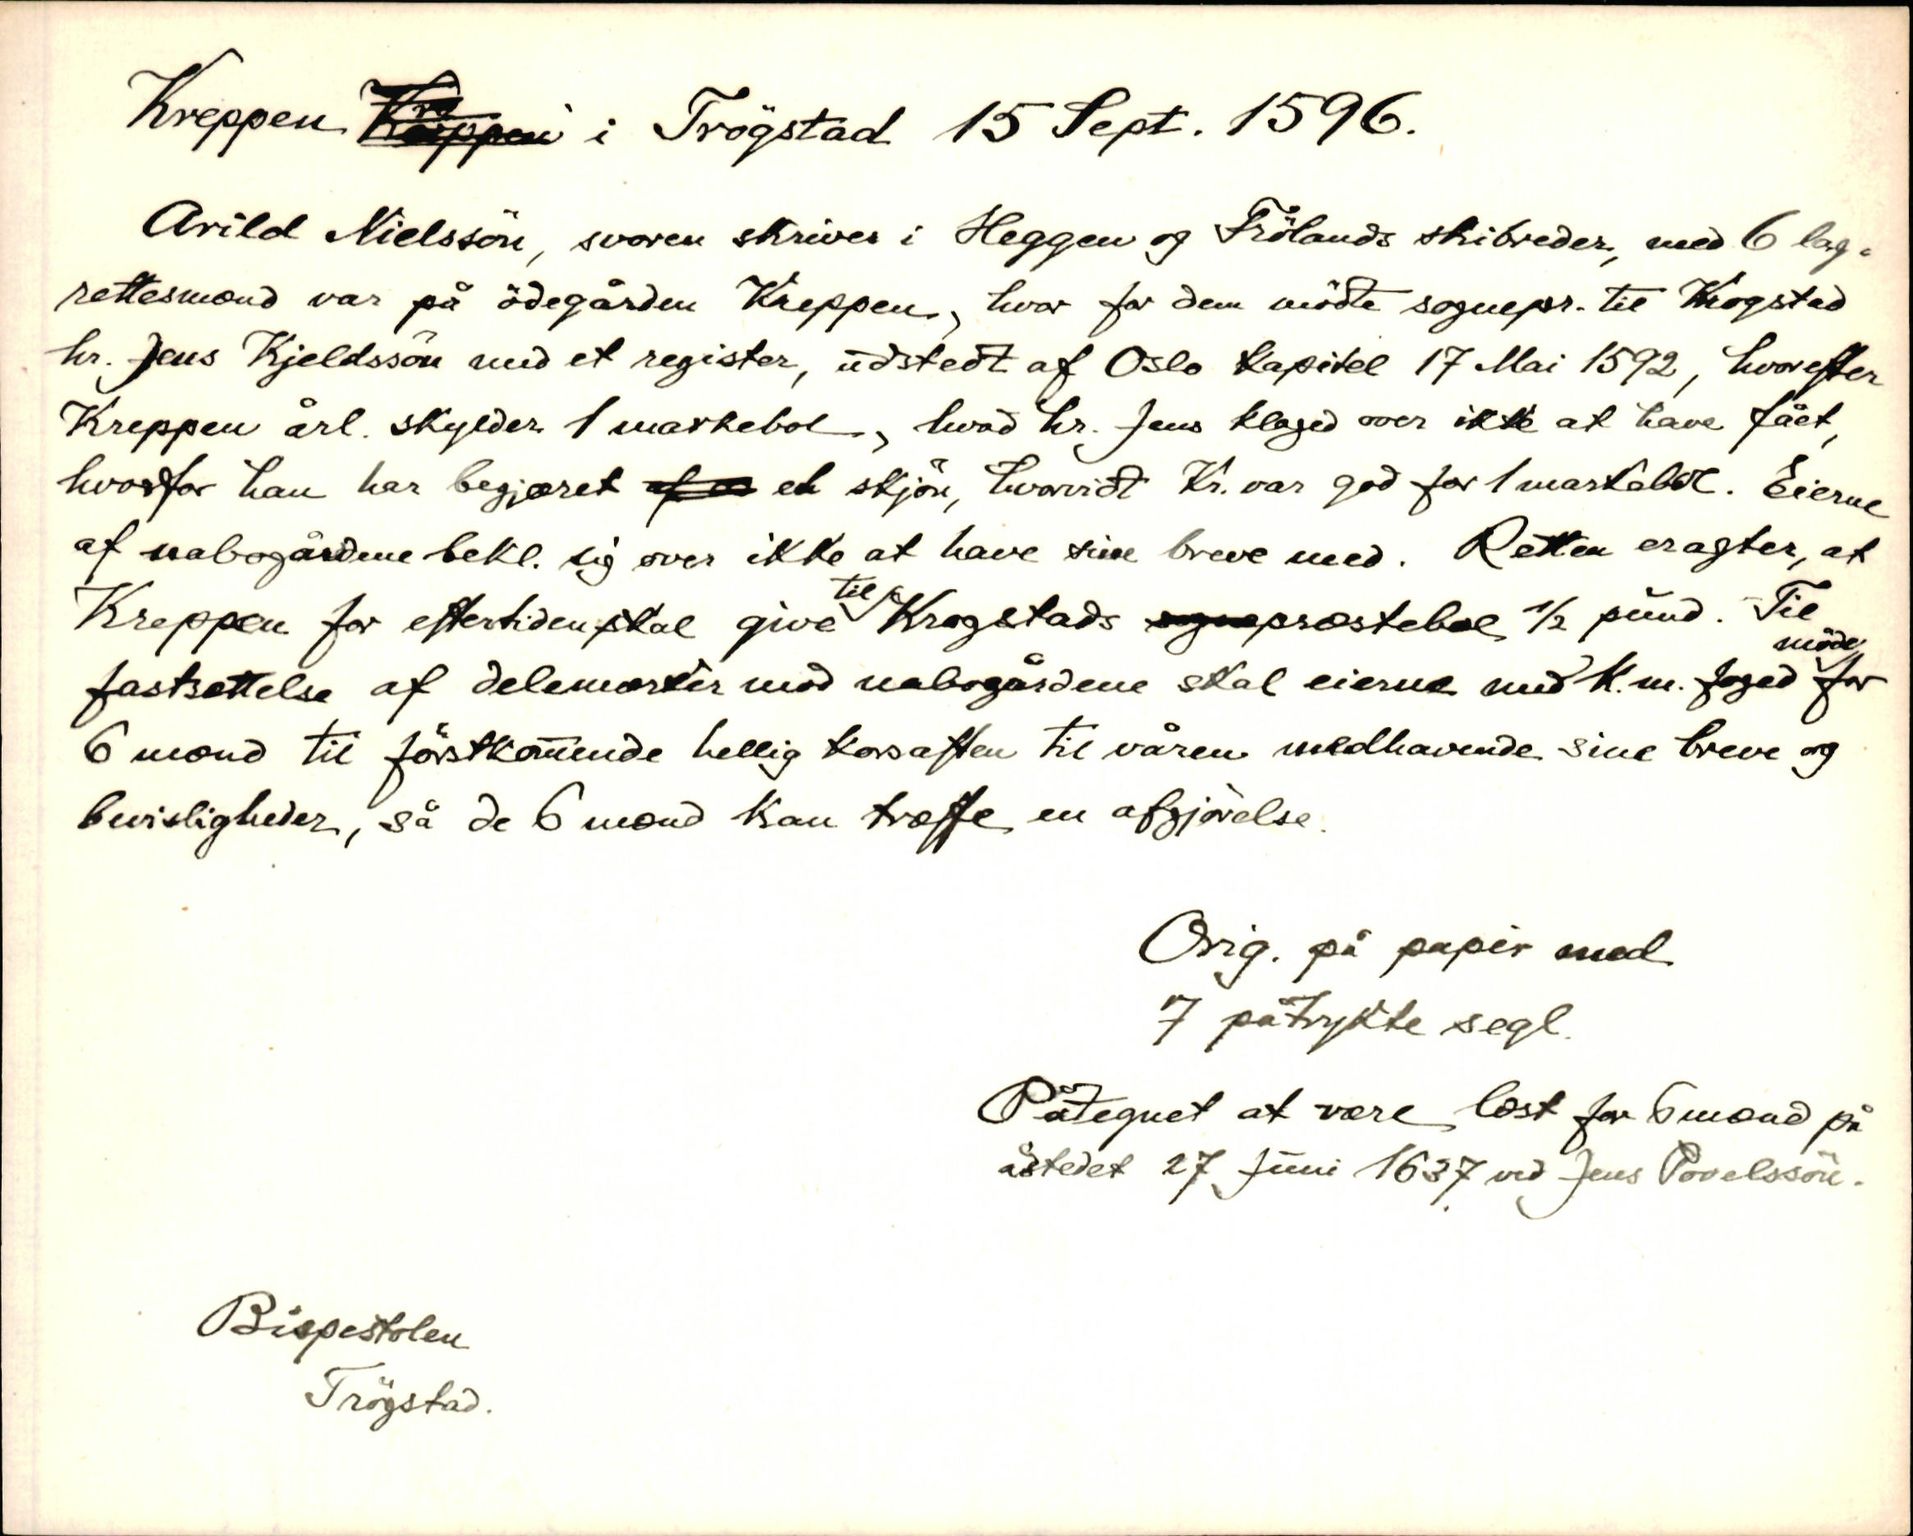 Kreppen i Trögstad 15 Sept. 1596.
Arild Nielssön, svoren skriver i Heggen og Frölands skibreder, med 6 lag-
rettesmænd var på ödegården Kreppen, hvor for dem mödte sognepr. til Krogstad
hr. Jens Kjeldssön med et register, udstedt af Oslo kapitel 17 Mai 1592, hvorefter
Kreppen årl. skylder 1 markebol, hvad hr. Jens klaged over ikke at have fået,
hvorfor han har begjæret et skjön, hvorvidt Kr. var god for 1 markebol. Eierne
af nabogårdene bekl. sig over ikke at have sine breve med. Retten eragter, at
Kreppen for eftertiden skal give til Krogstads præstebol 1/2 pund. Til
fastsættelse af delemærker mod nabogårdene skal eierne med k. m. foged möde for
6 mænd til förstkom̄ende hellig korsaften til våren medhavende sine breve og
bevisligheder, så de 6 mænd kan træffe en afgjörelse.
Orig. på papir med
7 påtrykte segl.
Påtegnet at være læst for 6 mænd på
åstedet 27 Juni 1637 ved Jens Povelssön.
Bispestolen
Trögstad.